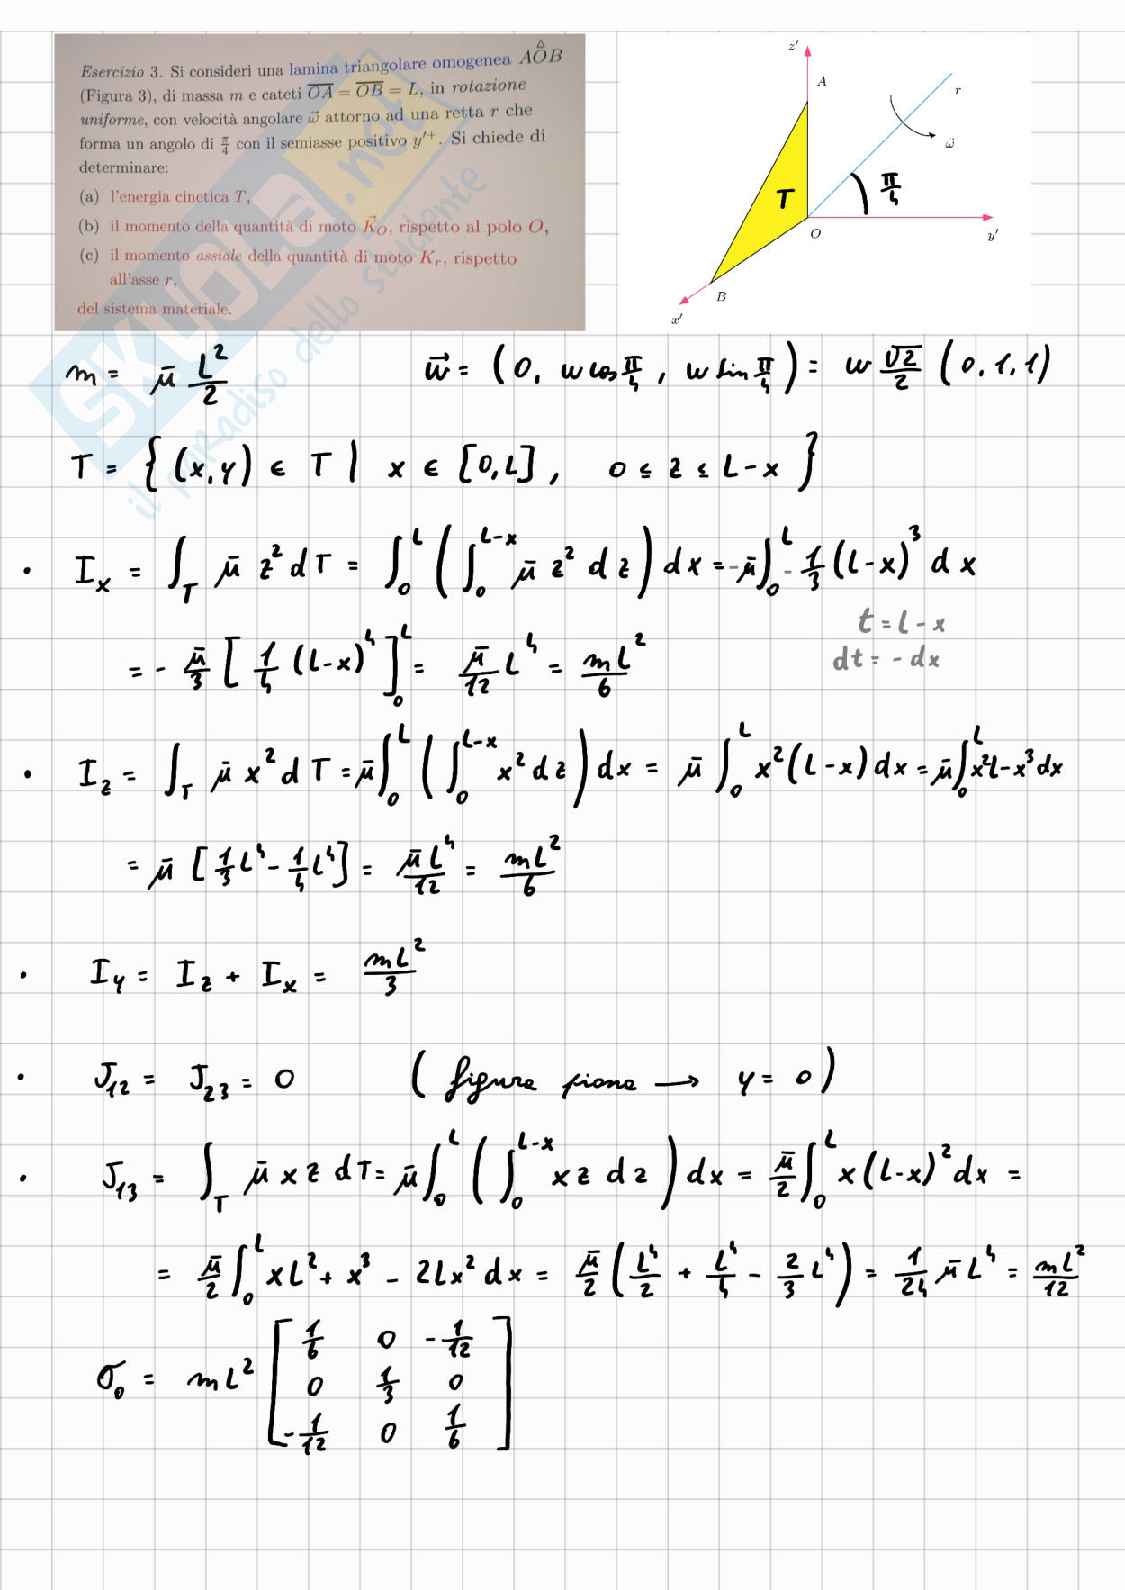 Esercizio 3. Si consideri una lamina triangolare omogenea AÔB
(Figura 3), di massa m e cateti OA = OB = L, in rotazione
uniforme, con velocità angolare ω⃗ attorno ad una retta r che
forma un angolo di π/4 con il semiasse positivo y'⁺. Si chiede di
determinare:
(a) l'energia cinetica T,
(b) il momento della quantità di moto K⃗_O, rispetto al polo O,
(c) il momento assiale della quantità di moto K_r, rispetto
all'asse r,
del sistema materiale.
SKUOLA.net
il paradiso dello studente
z'
A
r
ω⃗
T
π/4
O
y'
B
x'
m = μ̄ L²/2
w⃗ = (0, w cos π/4, w sin π/4) = w √2/2 (0, 1, 1)
T = { (x, y) ∈ T | x ∈ [0, L], 0 ≤ z ≤ L-x }
• I_x = ∫_T μ̄ z² dT = ∫_0^L ( ∫_0^{L-x} μ̄ z² dz ) dx = -μ̄ ∫_0^L - 1/3 (L-x)³ dx
t = L - x
dt = - dx
= - μ̄/3 [ 1/4 (L-x)⁴ ]_0^L = μ̄/12 L⁴ = mL²/6
• I_z = ∫_T μ̄ x² dT = μ̄ ∫_0^L ( ∫_0^{L-x} x² dz ) dx = μ̄ ∫_0^L x² (L-x) dx = μ̄ ∫_0^L x²L - x³ dx
= μ̄ [ 1/3 L⁴ - 1/4 L⁴ ] = μ̄L⁴/12 = mL²/6
• I_y = I_z + I_x = mL²/3
• J_12 = J_23 = 0 ( figura piana → y = 0 )
• J_13 = ∫_T μ̄ x z dT = μ̄ ∫_0^L ( ∫_0^{L-x} x z dz ) dx = μ̄/2 ∫_0^L x (L-x)² dx =
= μ̄/2 ∫_0^L xL² + x³ - 2Lx² dx = μ̄/2 ( L⁴/2 + L⁴/4 - 2/3 L⁴ ) = 1/24 μ̄ L⁴ = mL²/12
σ_0 = mL² [ 1/6 0 -1/12
0 1/3 0
-1/12 0 1/6 ]